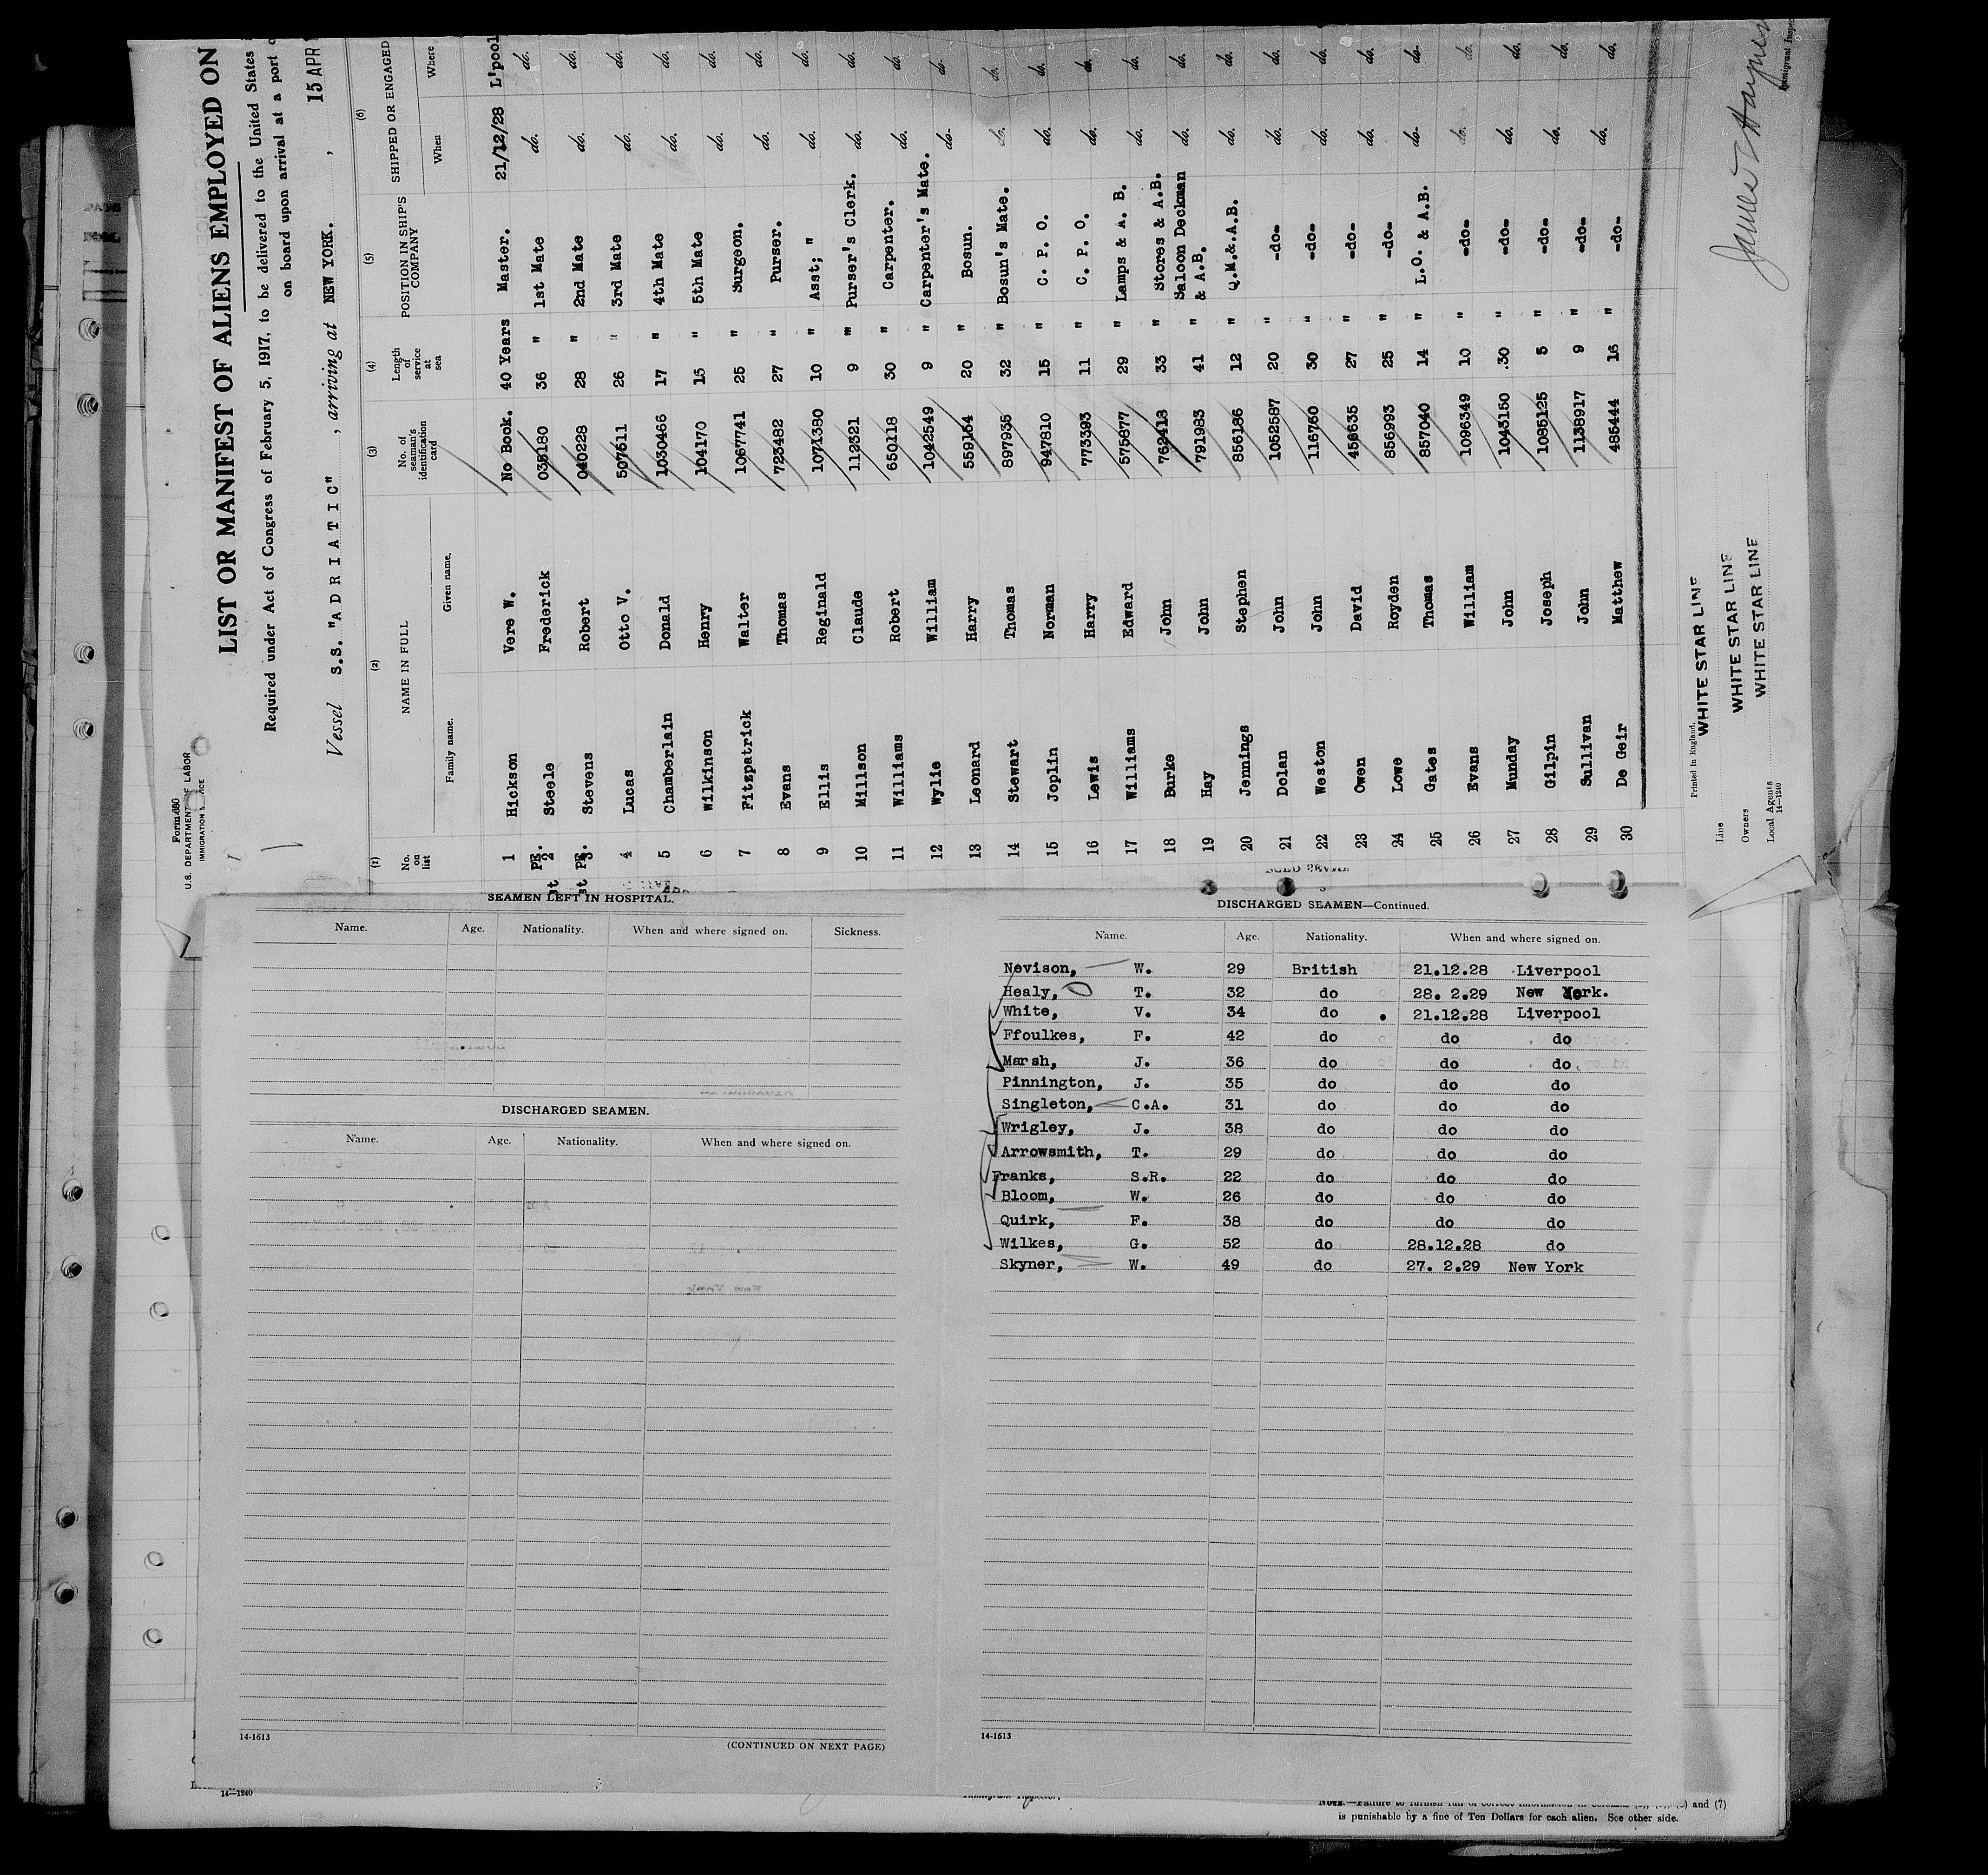 Form 680
U.S. DEPARTMENT OF LABOR
IMMIGRATION
LIST OR MANIFEST OF ALIENS EMPLOYED ON
Required under Act of Congress of February 5, 1917, to be delivered to the United States
on board upon arrival at a port
Vessel S.S. "ADRIATIC", arriving at NEW YORK. , 15 APR
(1) (2) (3) (4) (5) (6)
No. on list NAME IN FULL No. of seaman's identification card Length of service at sea POSITION IN SHIP'S COMPANY SHIPPED OR ENGAGED
Family name. Given name. When Where
1 Hickson Vere W. No Book. 40 Years Master. 21/12/28 L'pool
2 Steele Frederick 035180 36 " 1st Mate do. do.
3 Stevens Robert 040228 28 " 2nd Mate do. do.
4 Lucas Otto V. 507511 26 " 3rd Mate do. do.
5 Chamberlain Donald 1030466 17 " 4th Mate do. do.
6 Wilkinson Henry 104170 15 " 5th Mate do. do.
7 Fitzpatrick Walter 1067741 25 " Surgeon. do. do.
8 Evans Thomas 723482 27 " Purser. do. do.
9 Ellis Reginald 1071380 10 " Asst; " do. do.
10 Millson Claude 112321 9 " Purser's Clerk. do. do.
11 Williams Robert 650118 30 " Carpenter. do. do.
12 Wylie William 1042549 9 " Carpenter's Mate. do- do.
13 Leonard Harry 559154 20 " Bosun. do. do.
14 Stewart Thomas 897935 32 " Bosun's Mate. do. do.
15 Joplin Norman 947810 15 " C. P. O. do. do.
16 Lewis Harry 773393 11 " C. P. O. do. do.
17 Williams Edward 575877 29 " Lamps & A. B. do. do.
18 Burke John 762418 33 " Stores & A.B. do. do.
19 Hay John 791983 41 " Saloon Deckman & A.B. do. do.
20 Jennings Stephen 856186 12 " Q.M.&.A.B. do. do.
21 Dolan John 1052587 20 " -do- do. do.
22 Weston John 116750 30 " -do- do. do.
23 Owen David 456535 27 " -do- do. do.
24 Lowe Royden 856993 25 " -do- do. do.
25 Gates Thomas 857040 14 " L.O. & A.B. do- do-
26 Evans William 1096349 10 " -do- do. do.
27 Munday John 1043150 30 " -do- do. do.
28 Gilpin Joseph 1085125 5 " -do- do. do.
29 Sullivan John 1138917 9 " -do- do. do.
30 De Geir Matthew 485444 16 " -do- do. do.
Printed in England.
Line WHITE STAR LINE
Owners WHITE STAR LINE
Local Agents WHITE STAR LINE
14-1240
SEAMEN LEFT IN HOSPITAL.
Name. Age. Nationality. When and where signed on. Sickness.
DISCHARGED SEAMEN.
Name. Age. Nationality. When and where signed on.
14-1613
(CONTINUED ON NEXT PAGE)
DISCHARGED SEAMEN—Continued.
Name. Age. Nationality. When and where signed on.
Nevison, W. 29 British 21.12.28 Liverpool
Healy, T. 32 do 28. 2.29 New York.
White, V. 34 do 21.12.28 Liverpool
Ffoulkes, F. 42 do do do
Marsh, J. 36 do do do
Pinnington, J. 35 do do do
Singleton, C.A. 31 do do do
Wrigley, J. 38 do do do
Arrowsmith, T. 29 do do do
Franks, S.R. 22 do do do
Bloom, W. 26 do do do
Quirk, F. 38 do do do
Wilkes, G. 52 do 28.12.28 do
Skyner, W. 49 do 27. 2.29 New York
14-1613
14-1240
and (7)
is punishable by a fine of Ten Dollars for each alien. See other side.